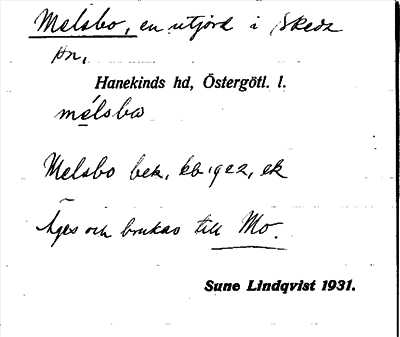 Melsbo, en utjord i Skeda
sn,
Hanekinds hd, Östergötl. l.
mélsbω
Melsbo bek, kb 1922, ek
Äges och brukas till Mo.
Sune Lindqvist 1931.